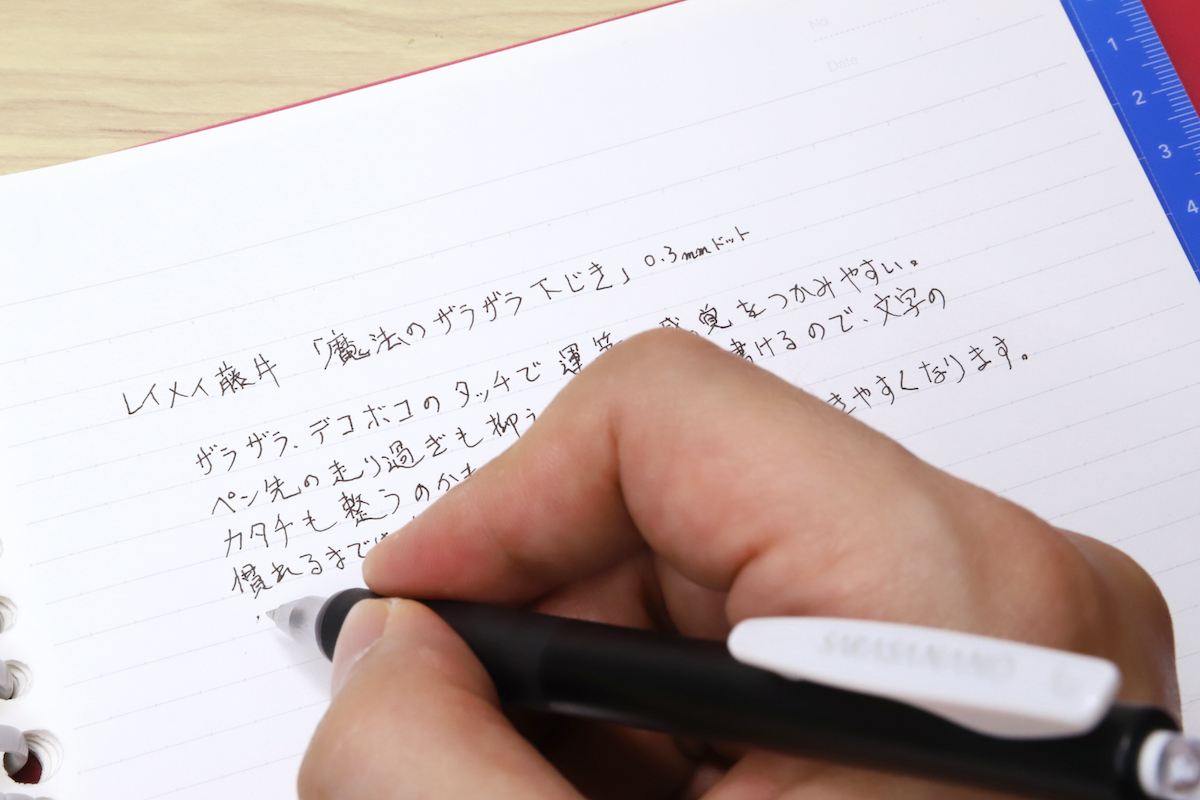 No.
Date
1
2
3
4
レイメイ藤井 「魔法のザラザラ下じき」 0.3mmドット
ザラザラ、デコボコのタッチで運筆 感覚をつかみやすい。
ペン先の走り過ぎも抑え 書けるので、文字の
カタチも整うのか きやすくなります。
慣れるまでは
SARASA NANO